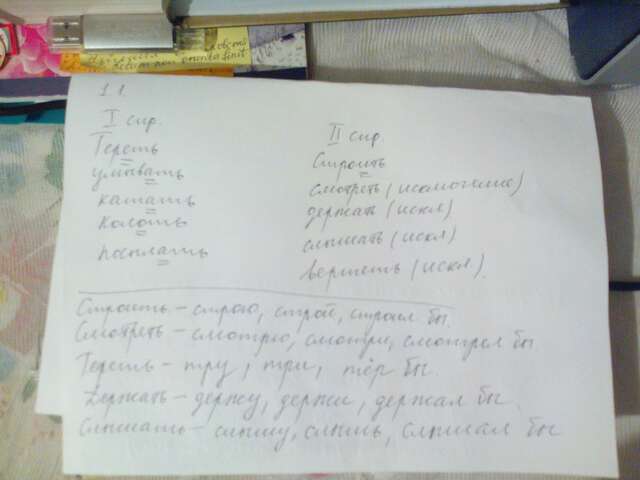 11.
I спр.
Тереть
умывать
катать
колоть
посылать
II спр
Строить
смотреть (исключение)
держать (искл)
слышать (искл)
вертеть (искл)
Строить - строю, строй, строил бы.
Смотреть - смотрю, смотри, смотрел бы
Тереть - тру, три, тёр бы.
Держать - держу, держи, держал бы.
Слышать - слышу, слышь, слышал бы